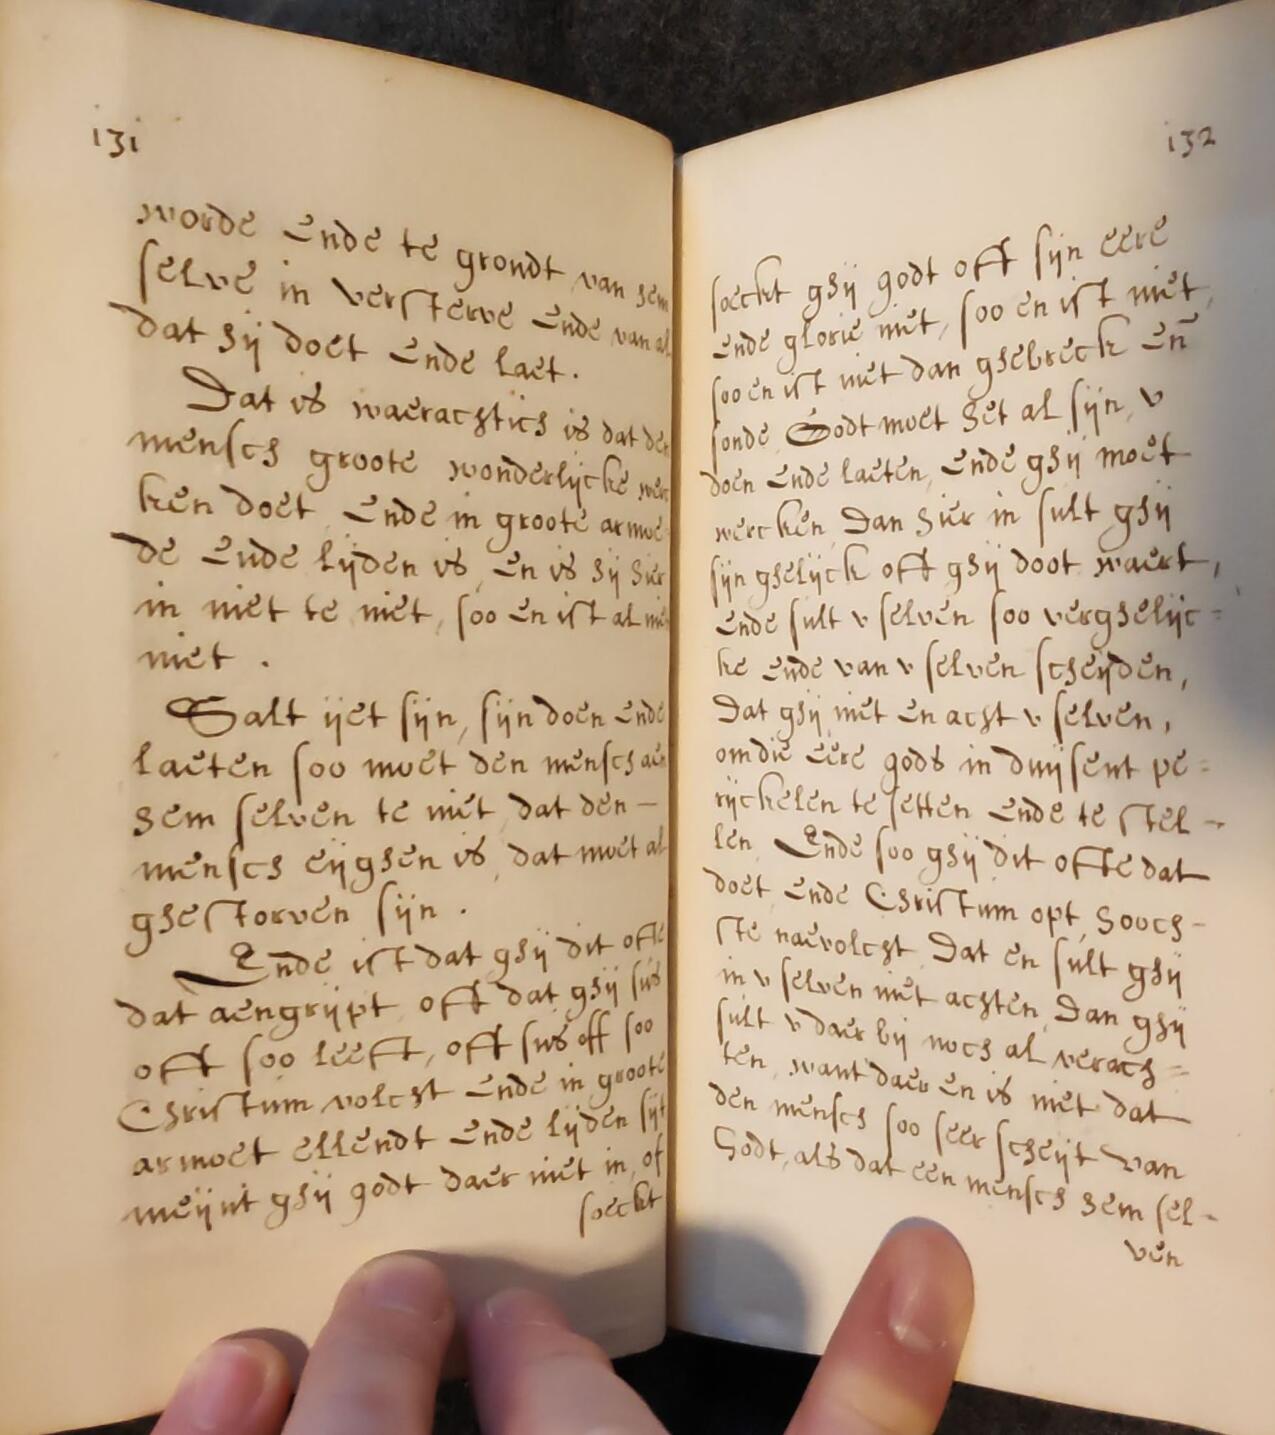 131
worde ende te grondt van hem
selve in versterve ende van al
dat hij doet ende laet.
Dat is waerachtich is dat den
mensch groote wonderlijcke werc
ken doet, ende in groote armoe
de ende lijden is, en is hij hier
in niet te niet, soo en ist al
niet.
Salt ijet sijn, sijn doen ende
laeten soo moet den mensch aen
hem selven te niet, dat den —
mensch eijghen is, dat moet al
ghestorven sijn.
Ende ist dat ghij dit ofte
dat aengrijpt, oft dat ghij sus
oft soo leeft, oft sus off soo
Christum volcht ende in groote
armoet ellendt ende lijden sijt
meijnt ghij godt daer niet in, of
soeckt
132
soeckt ghij godt oft sijn eere
ende glorie niet, soo en ist niet,
soo en ist niet dan ghebreck en̄
sonde. Godt moet het al sijn, v
doen ende laeten, ende ghij moet
wercken, dan hier in sult ghij
sijn ghelijck oft ghij doot waert,
ende sult v selven soo verghelijc=
ke ende van v selven scheijden,
Dat ghij niet en acht v selven,
om die eere gods in duijsent pe=
rijckelen te setten ende te stel-
len. Ende soo ghij dit ofte dat
doet, ende Christum opt hooch-
ste naevolcht, Dat en sult ghij
in v selven niet achten, Dan ghij
sult v daer bij noch al verach=
ten, want daer en is niet dat
den mensch soo seer scheijt van
Godt, als dat een mensch hem sel-
ven